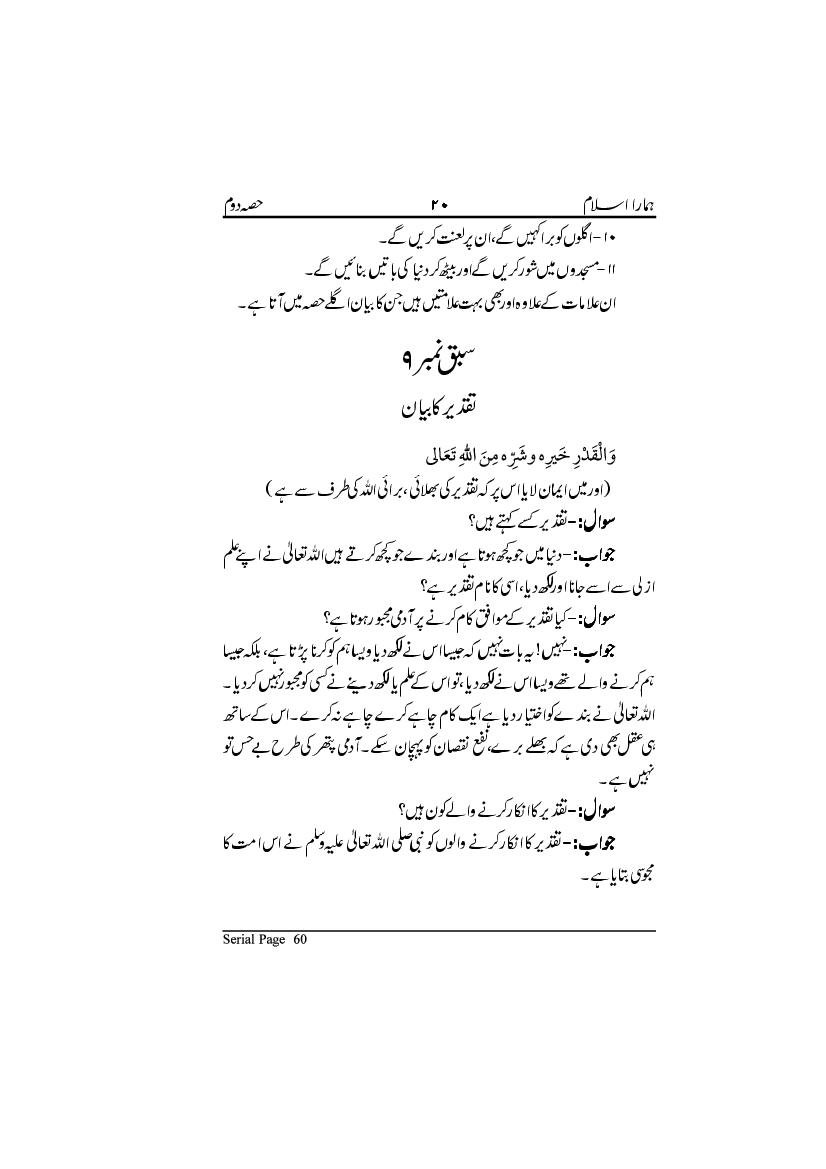 ہمارا اسلام ۲۰ حصہ دوم
۱۰-اگلوں کو برا کہیں گے، ان پر لعنت کریں گے۔
۱۱-مسجدوں میں شور کریں گے اور بیٹھ کر دنیا کی باتیں بنائیں گے۔
ان علامات کے علاوہ اور بھی بہت علامتیں ہیں جن کا بیان اگلے حصہ میں آتا ہے۔
سبق نمبر ۹
تقدیر کا بیان
وَالْقَدْرِ خَيرِہ وشَرِّہ مِنَ اللهِ تَعَالى
(اور میں ایمان لایا اس پر کہ تقدیر کی بھلائی، برائی اللہ کی طرف سے ہے)
سوال:-تقدیر کسے کہتے ہیں؟
جواب:-دنیا میں جو کچھ ہوتا ہے اور بندے جو کچھ کرتے ہیں اللہ تعالیٰ نے اپنے علم
ازلی سے اسے جانا اور لکھ دیا، اسی کا نام تقدیر ہے؟
سوال:-کیا تقدیر کے موافق کام کرنے پر آدمی مجبور ہوتا ہے؟
جواب:-نہیں! یہ بات نہیں کہ جیسا اس نے لکھ دیا ویسا ہم کو کرنا پڑتا ہے، بلکہ جیسا
ہم کرنے والے تھے ویسا اس نے لکھ دیا، تو اس کے علم یا لکھ دینے نے کسی کو مجبور نہیں کر دیا۔
اللہ تعالیٰ نے بندے کو اختیار دیا ہے ایک کام چاہے کرے چاہے نہ کرے۔ اس کے ساتھ
ہی عقل بھی دی ہے کہ بھلے برے، نفع نقصان کو پہچان سکے۔ آدمی پتھر کی طرح بے حس تو
نہیں ہے۔
سوال:-تقدیر کا انکار کرنے والے کون ہیں؟
جواب:-تقدیر کا انکار کرنے والوں کو نبی صلی اللہ تعالیٰ علیہ وسلم نے اس امت کا
مجوسی بتایا ہے۔
Serial Page 60